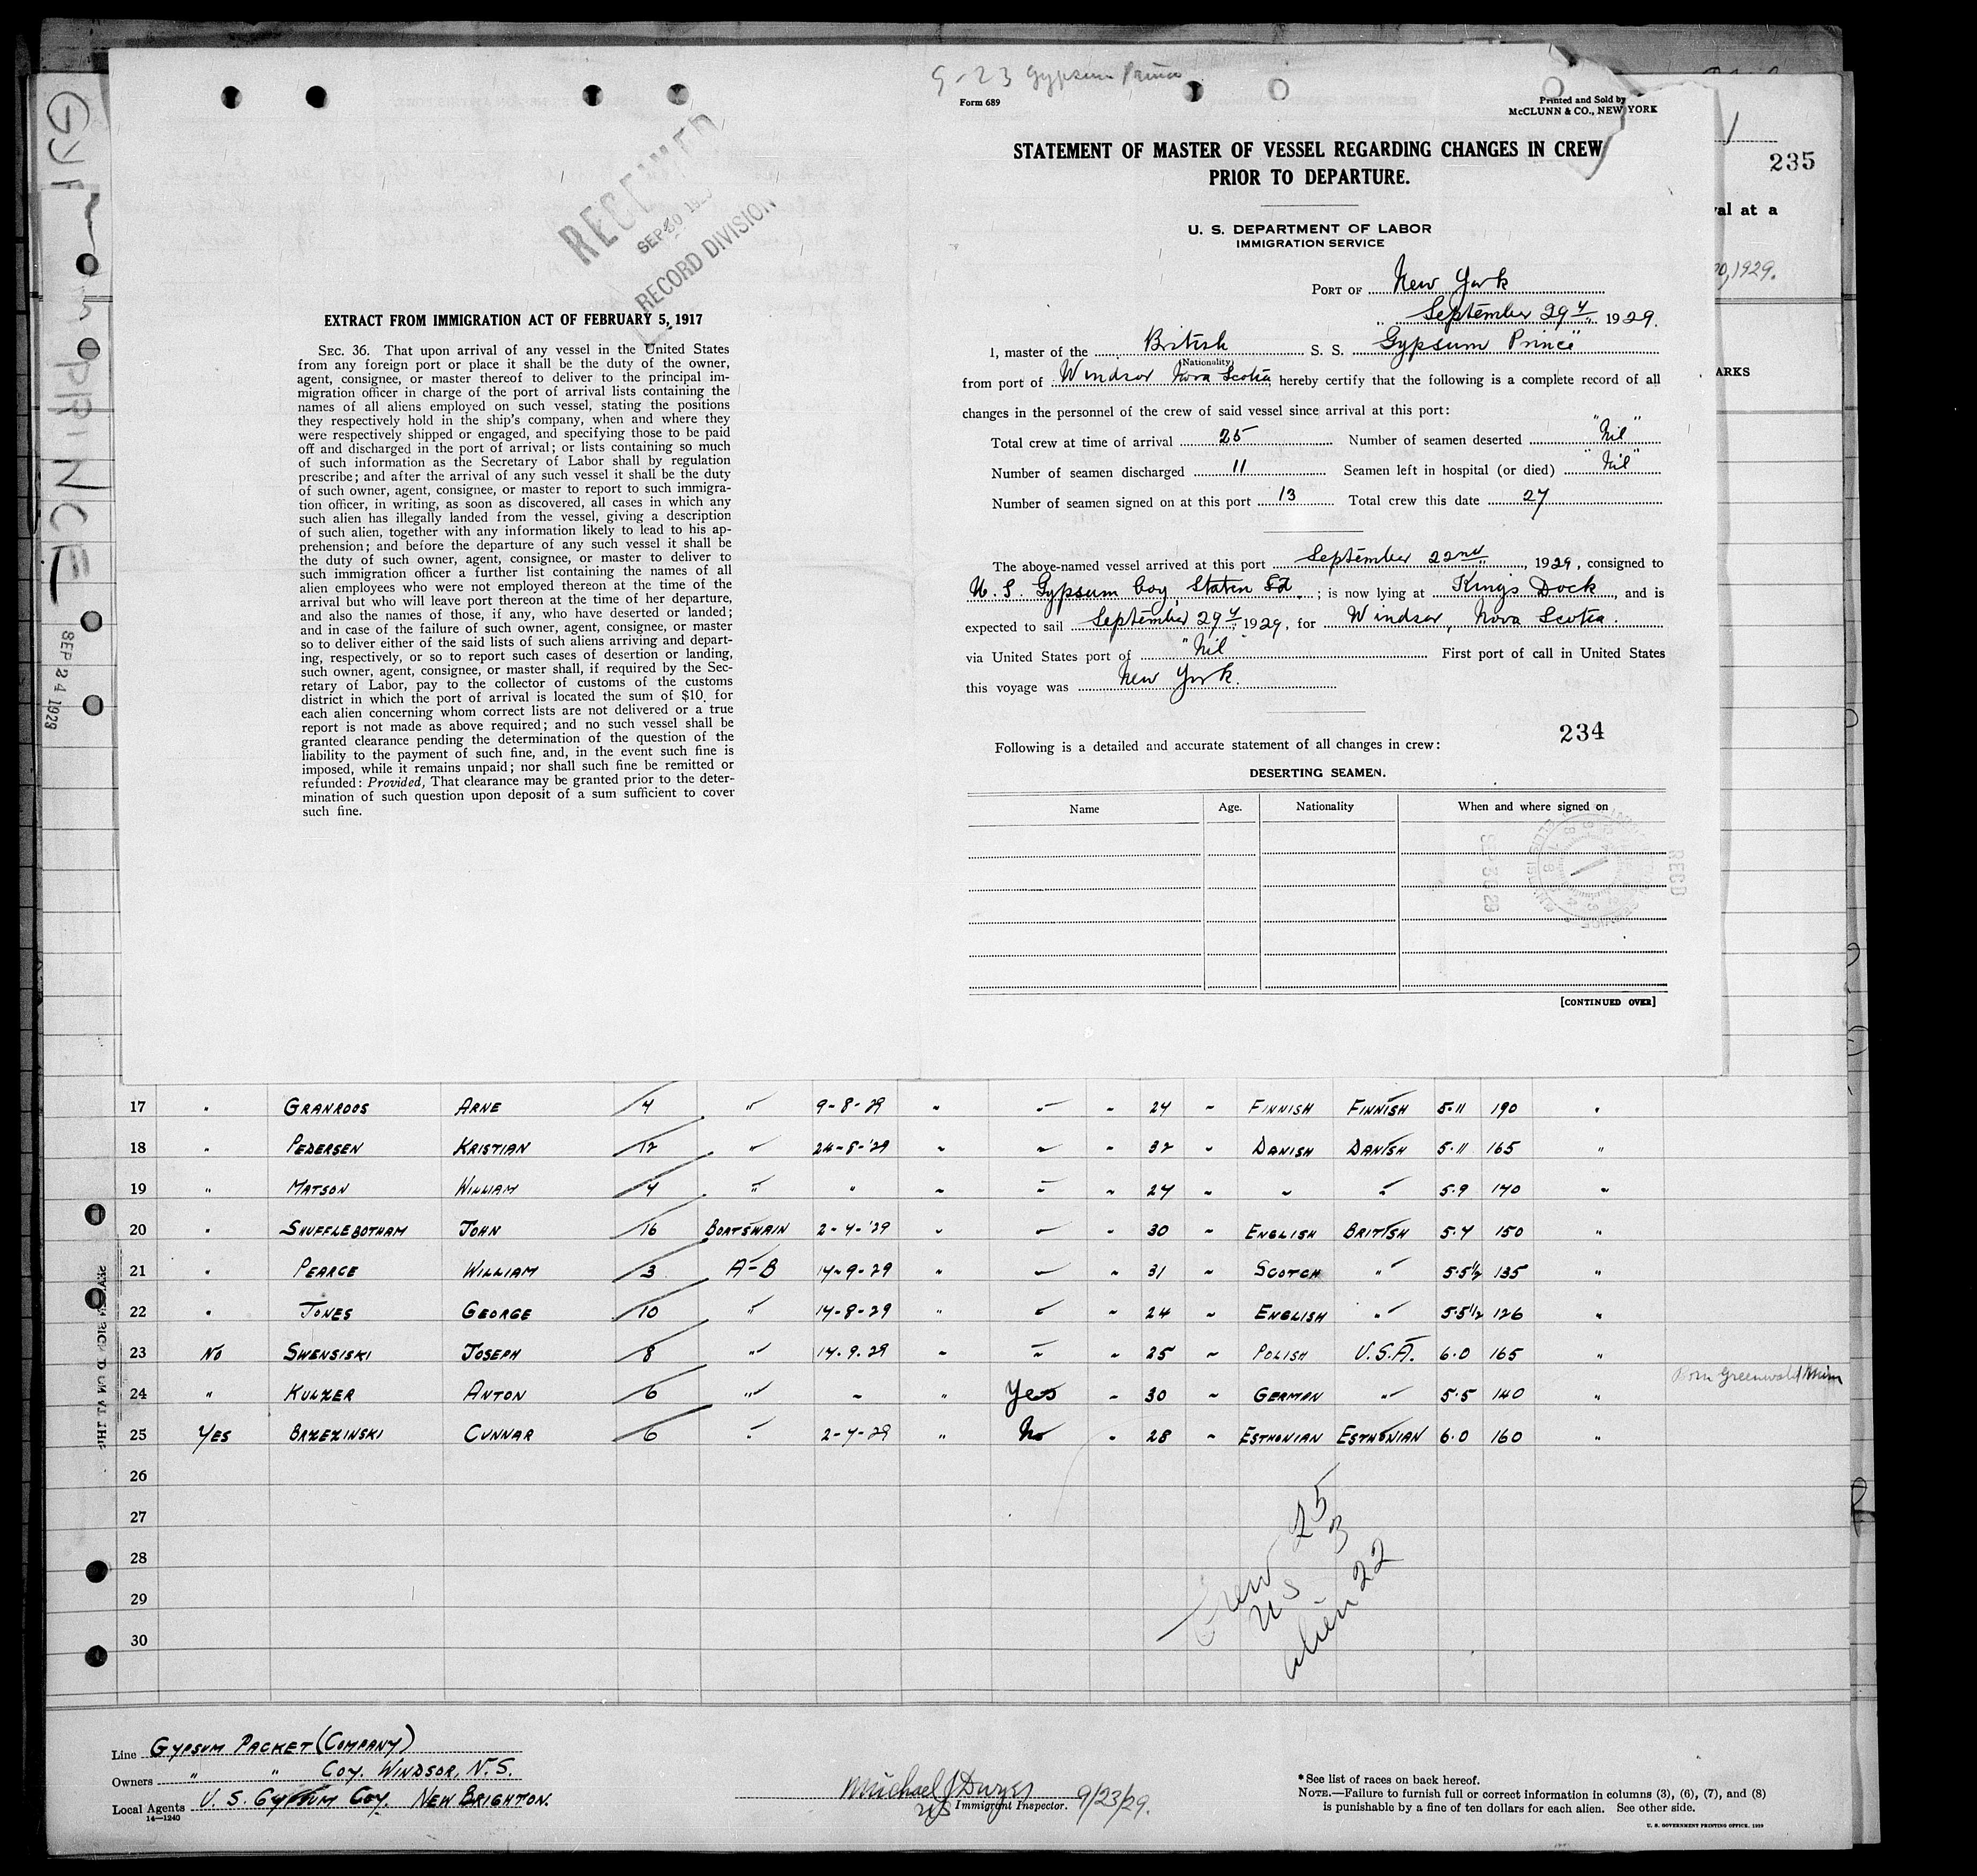 9-23 Gypsum Prince
Form 689
Printed and Sold by
McCLUNN & CO., NEW YORK
STATEMENT OF MASTER OF VESSEL REGARDING CHANGES IN CREW
PRIOR TO DEPARTURE.
U. S. DEPARTMENT OF LABOR
IMMIGRATION SERVICE
PORT OF New York
September 29th 1929.
I, master of the British S. S. "Gypsum Prince"
(Nationality)
from port of Windsor Nova Scotia hereby certify that the following is a complete record of all
changes in the personnel of the crew of said vessel since arrival at this port:
Total crew at time of arrival 25 Number of seamen deserted "Nil"
Number of seamen discharged 11 Seamen left in hospital (or died) "Nil"
Number of seamen signed on at this port 13 Total crew this date 27
The above-named vessel arrived at this port September 22nd, 1929, consigned to
U. S. Gypsum Coy, Staten Id.; is now lying at Kings Dock, and is
expected to sail September 29th 1929, for Windsor, Nova Scotia.
via United States port of "Nil" First port of call in United States
this voyage was New York.
234
Following is a detailed and accurate statement of all changes in crew:
DESERTING SEAMEN.
Name Age. Nationality When and where signed on
REC'D
SEP 30 29
[CONTINUED OVER]
RECEIVED
SEP 30 19
RECORD DIVISION
EXTRACT FROM IMMIGRATION ACT OF FEBRUARY 5, 1917
SEC. 36. That upon arrival of any vessel in the United States
from any foreign port or place it shall be the duty of the owner,
agent, consignee, or master thereof to deliver to the principal im-
migration officer in charge of the port of arrival lists containing the
names of all aliens employed on such vessel, stating the positions
they respectively hold in the ship's company, when and where they
were respectively shipped or engaged, and specifying those to be paid
off and discharged in the port of arrival; or lists containing so much
of such information as the Secretary of Labor shall by regulation
prescribe; and after the arrival of any such vessel it shall be the duty
of such owner, agent, consignee, or master to report to such immigra-
tion officer, in writing, as soon as discovered, all cases in which any
such alien has illegally landed from the vessel, giving a description
of such alien, together with any information likely to lead to his ap-
prehension; and before the departure of any such vessel it shall be
the duty of such owner, agent, consignee, or master to deliver to
such immigration officer a further list containing the names of all
alien employees who were not employed thereon at the time of the
arrival but who will leave port thereon at the time of her departure,
and also the names of those, if any, who have deserted or landed;
and in case of the failure of such owner, agent, consignee, or master
so to deliver either of the said lists of such aliens arriving and depart-
ing, respectively, or so to report such cases of desertion or landing,
such owner, agent, consignee, or master shall, if required by the Sec-
retary of Labor, pay to the collector of customs of the customs
district in which the port of arrival is located the sum of $10 for
each alien concerning whom correct lists are not delivered or a true
report is not made as above required; and no such vessel shall be
granted clearance pending the determination of the question of the
liability to the payment of such fine, and, in the event such fine is
imposed, while it remains unpaid; nor shall such fine be remitted or
refunded: Provided, That clearance may be granted prior to the deter-
mination of such question upon deposit of a sum sufficient to cover
such fine.
PRINCE
SEP 24 1929
235
val at a
1929.
ARKS
17 " GRANROOS ARNE 4 " 9-8-29 " " " 24 " FINNISH FINNISH 5.11 190 "
18 " PEDERSEN KRISTIAN 12 " 24-8-'29 " " " 32 " DANISH DANISH 5.11 165 "
19 " MATSON WILLIAM 4 " " " " " 24 " " " 5.9 170 "
20 " SHUFFLEBOTHAM JOHN 16 BOATSWAIN 2-7-'29 " " " 30 " ENGLISH BRITISH 5.7 150 "
21 " PEARCE WILLIAM 3 A-B 14-9-29 " " " 31 " SCOTCH " 5.5½ 135 "
22 " JONES GEORGE 10 " 14-8-29 " " " 24 " ENGLISH " 5.5½ 126 "
23 NO SWENSISKI JOSEPH 8 " 14.9.29 " " " 25 " POLISH U.S.A. 6.0 165 "
24 " KULZER ANTON 6 " " " Yes " 30 " GERMAN " 5.5 140 " Born Greenwald Minn
25 YES BRZEZINSKI CUNNAR 6 " 2-7-29 " No " 28 " ESTHONIAN ESTHONIAN 6.0 160 "
26
27
28
29
30
Crew 25
US 3
alien 22
Line GYPSUM PACKET (COMPANY)
Owners " " COY. WINDSOR, N.S.
Local Agents U. S. GYPSUM COY. NEW BRIGHTON.
14—1240
Michael J Dwyer
US Immigrant Inspector. 9/23/29.
*See list of races on back hereof.
NOTE.—Failure to furnish full or correct information in columns (3), (6), (7), and (8)
is punishable by a fine of ten dollars for each alien. See other side.
U. S. GOVERNMENT PRINTING OFFICE. 1929